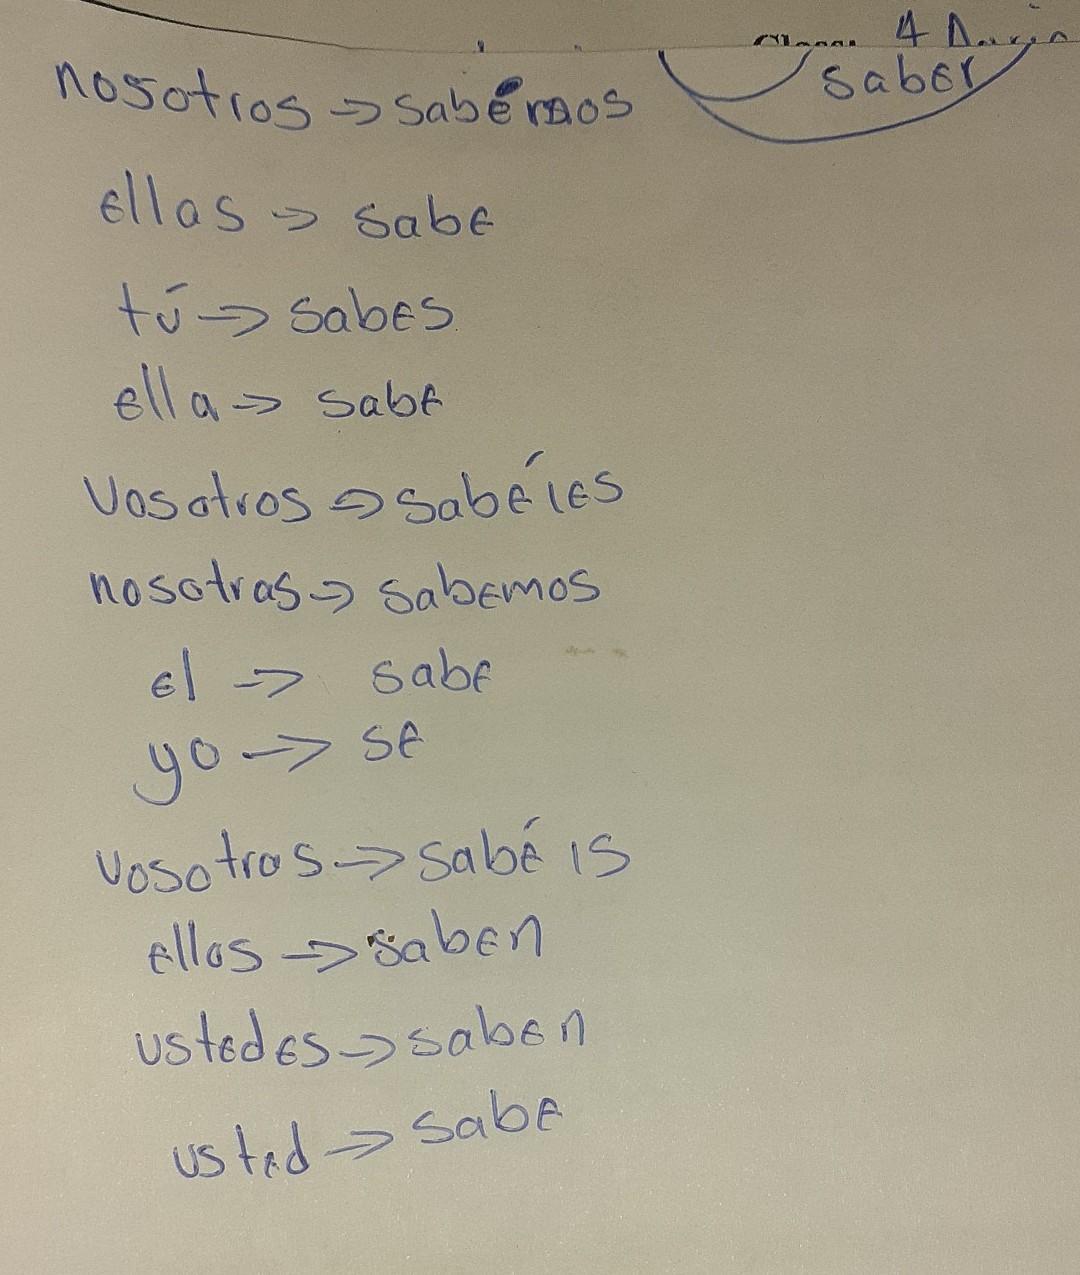 4
saber
nosotros => sabémos
ellas => sabe
tú -> sabes
ella -> sabe
Vosotros => sabéies
nosotras -> sabemos
el -> sabe
yo -> se
vosotras -> sabéis
ellos -> saben
ustedes -> saben
usted -> sabe